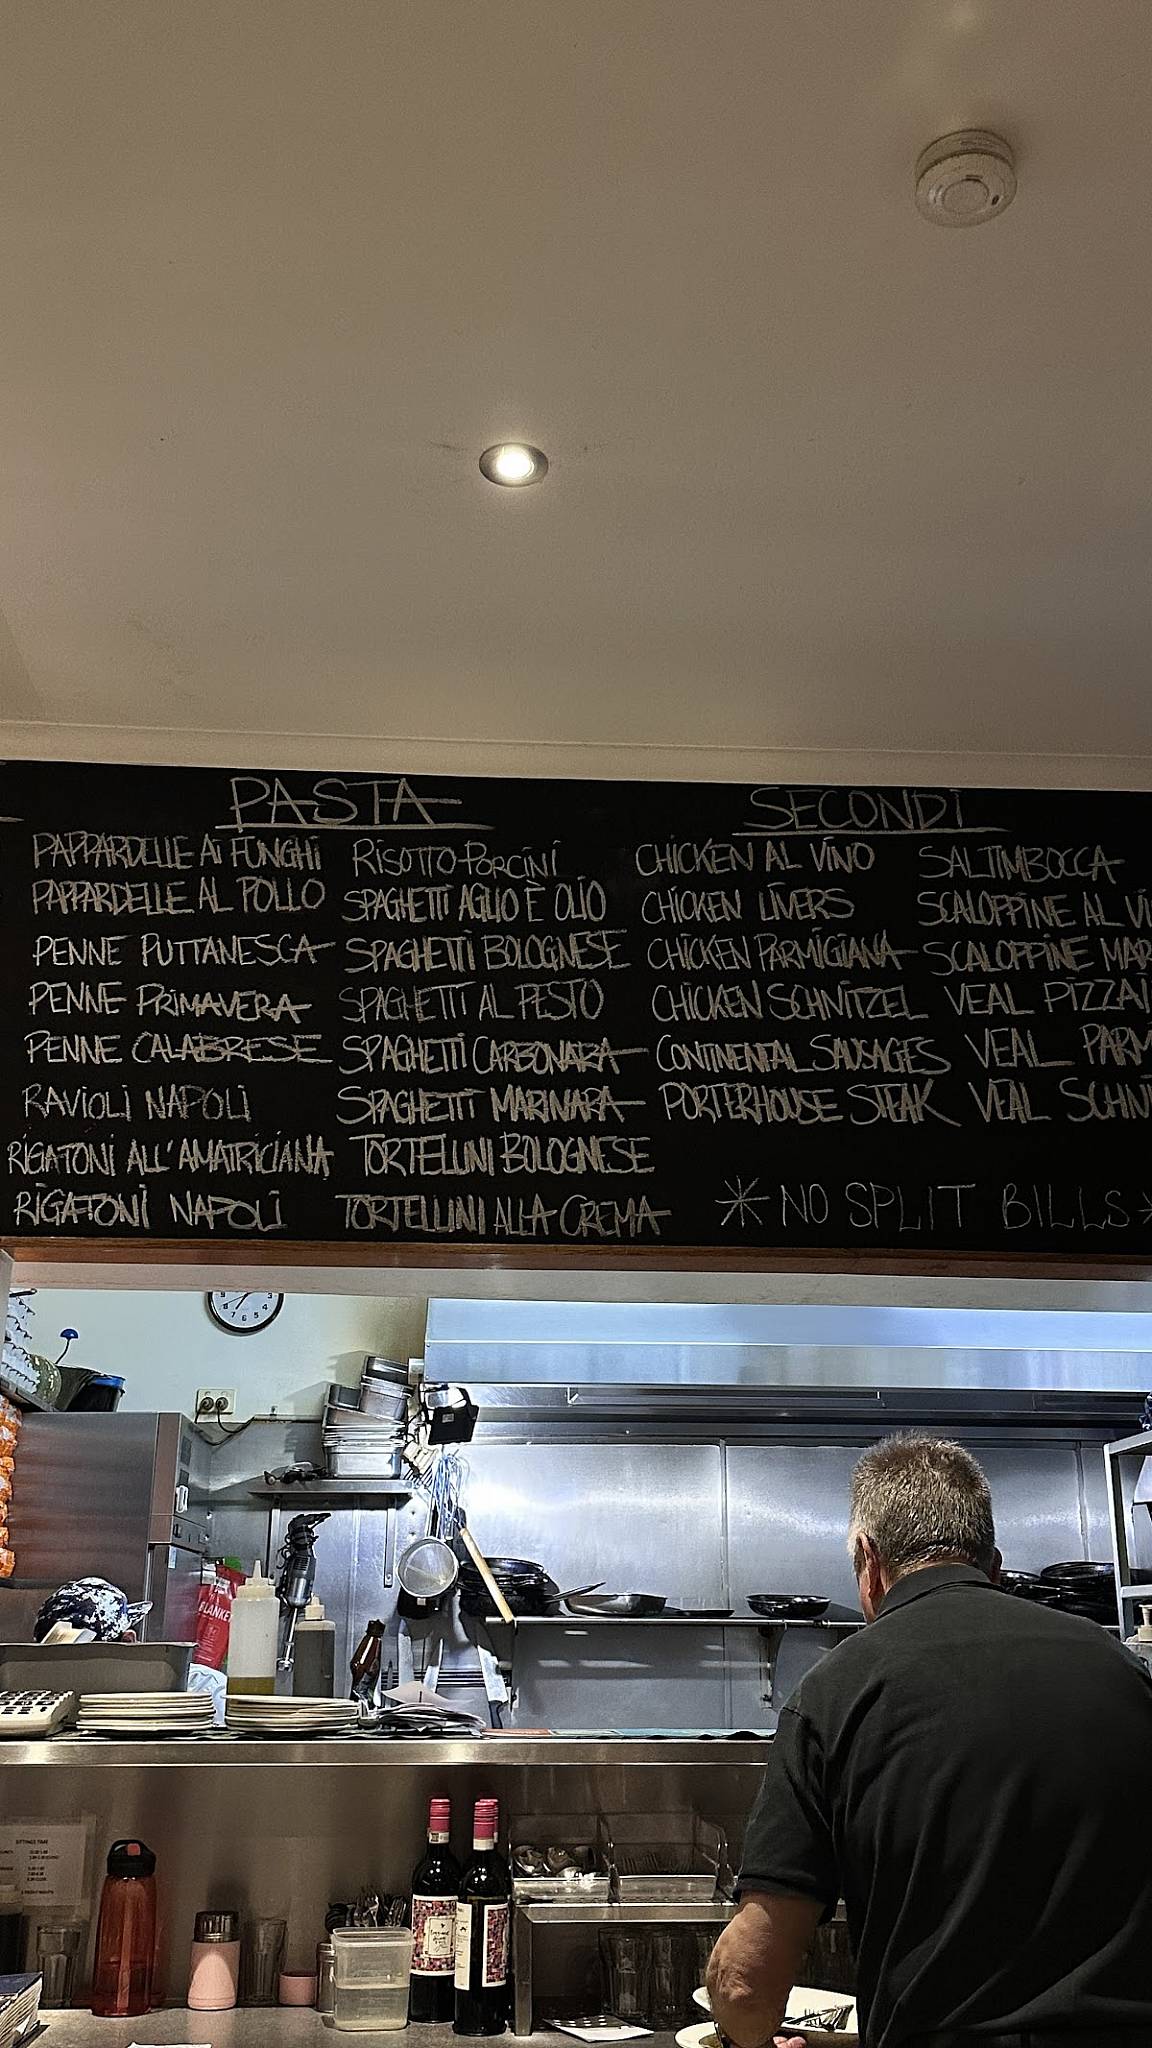 PASTA
PAPPARDELLE AI FUNGHI
PAPPARDELLE AL POLLO
PENNE PUTTANESCA
PENNE PRIMAVERA
PENNE CALABRESE
RAVIOLI NAPOLI
RIGATONI ALL'AMATRICIANA
RIGATONI NAPOLI
RISOTTO PORCINI
SPAGHETTI AGLIO E OLIO
SPAGHETTI BOLOGNESE
SPAGHETTI AL PESTO
SPAGHETTI CARBONARA
SPAGHETTI MARINARA
TORTELLINI BOLOGNESE
TORTELLINI ALLA CREMA
SECONDI
CHICKEN AL VINO
CHICKEN LIVERS
CHICKEN PARMIGIANA
CHICKEN SCHNITZEL
CONTINENTAL SAUSAGES
PORTERHOUSE STEAK
SALTIMBOCCA
SCALOPPINE AL VI
SCALOPPINE MAR
VEAL PIZZAI
VEAL PARM
VEAL SCHNI
* NO SPLIT BILLS *
9 8 7 6 5 4 3
BLANKET
SITTINGS TIME